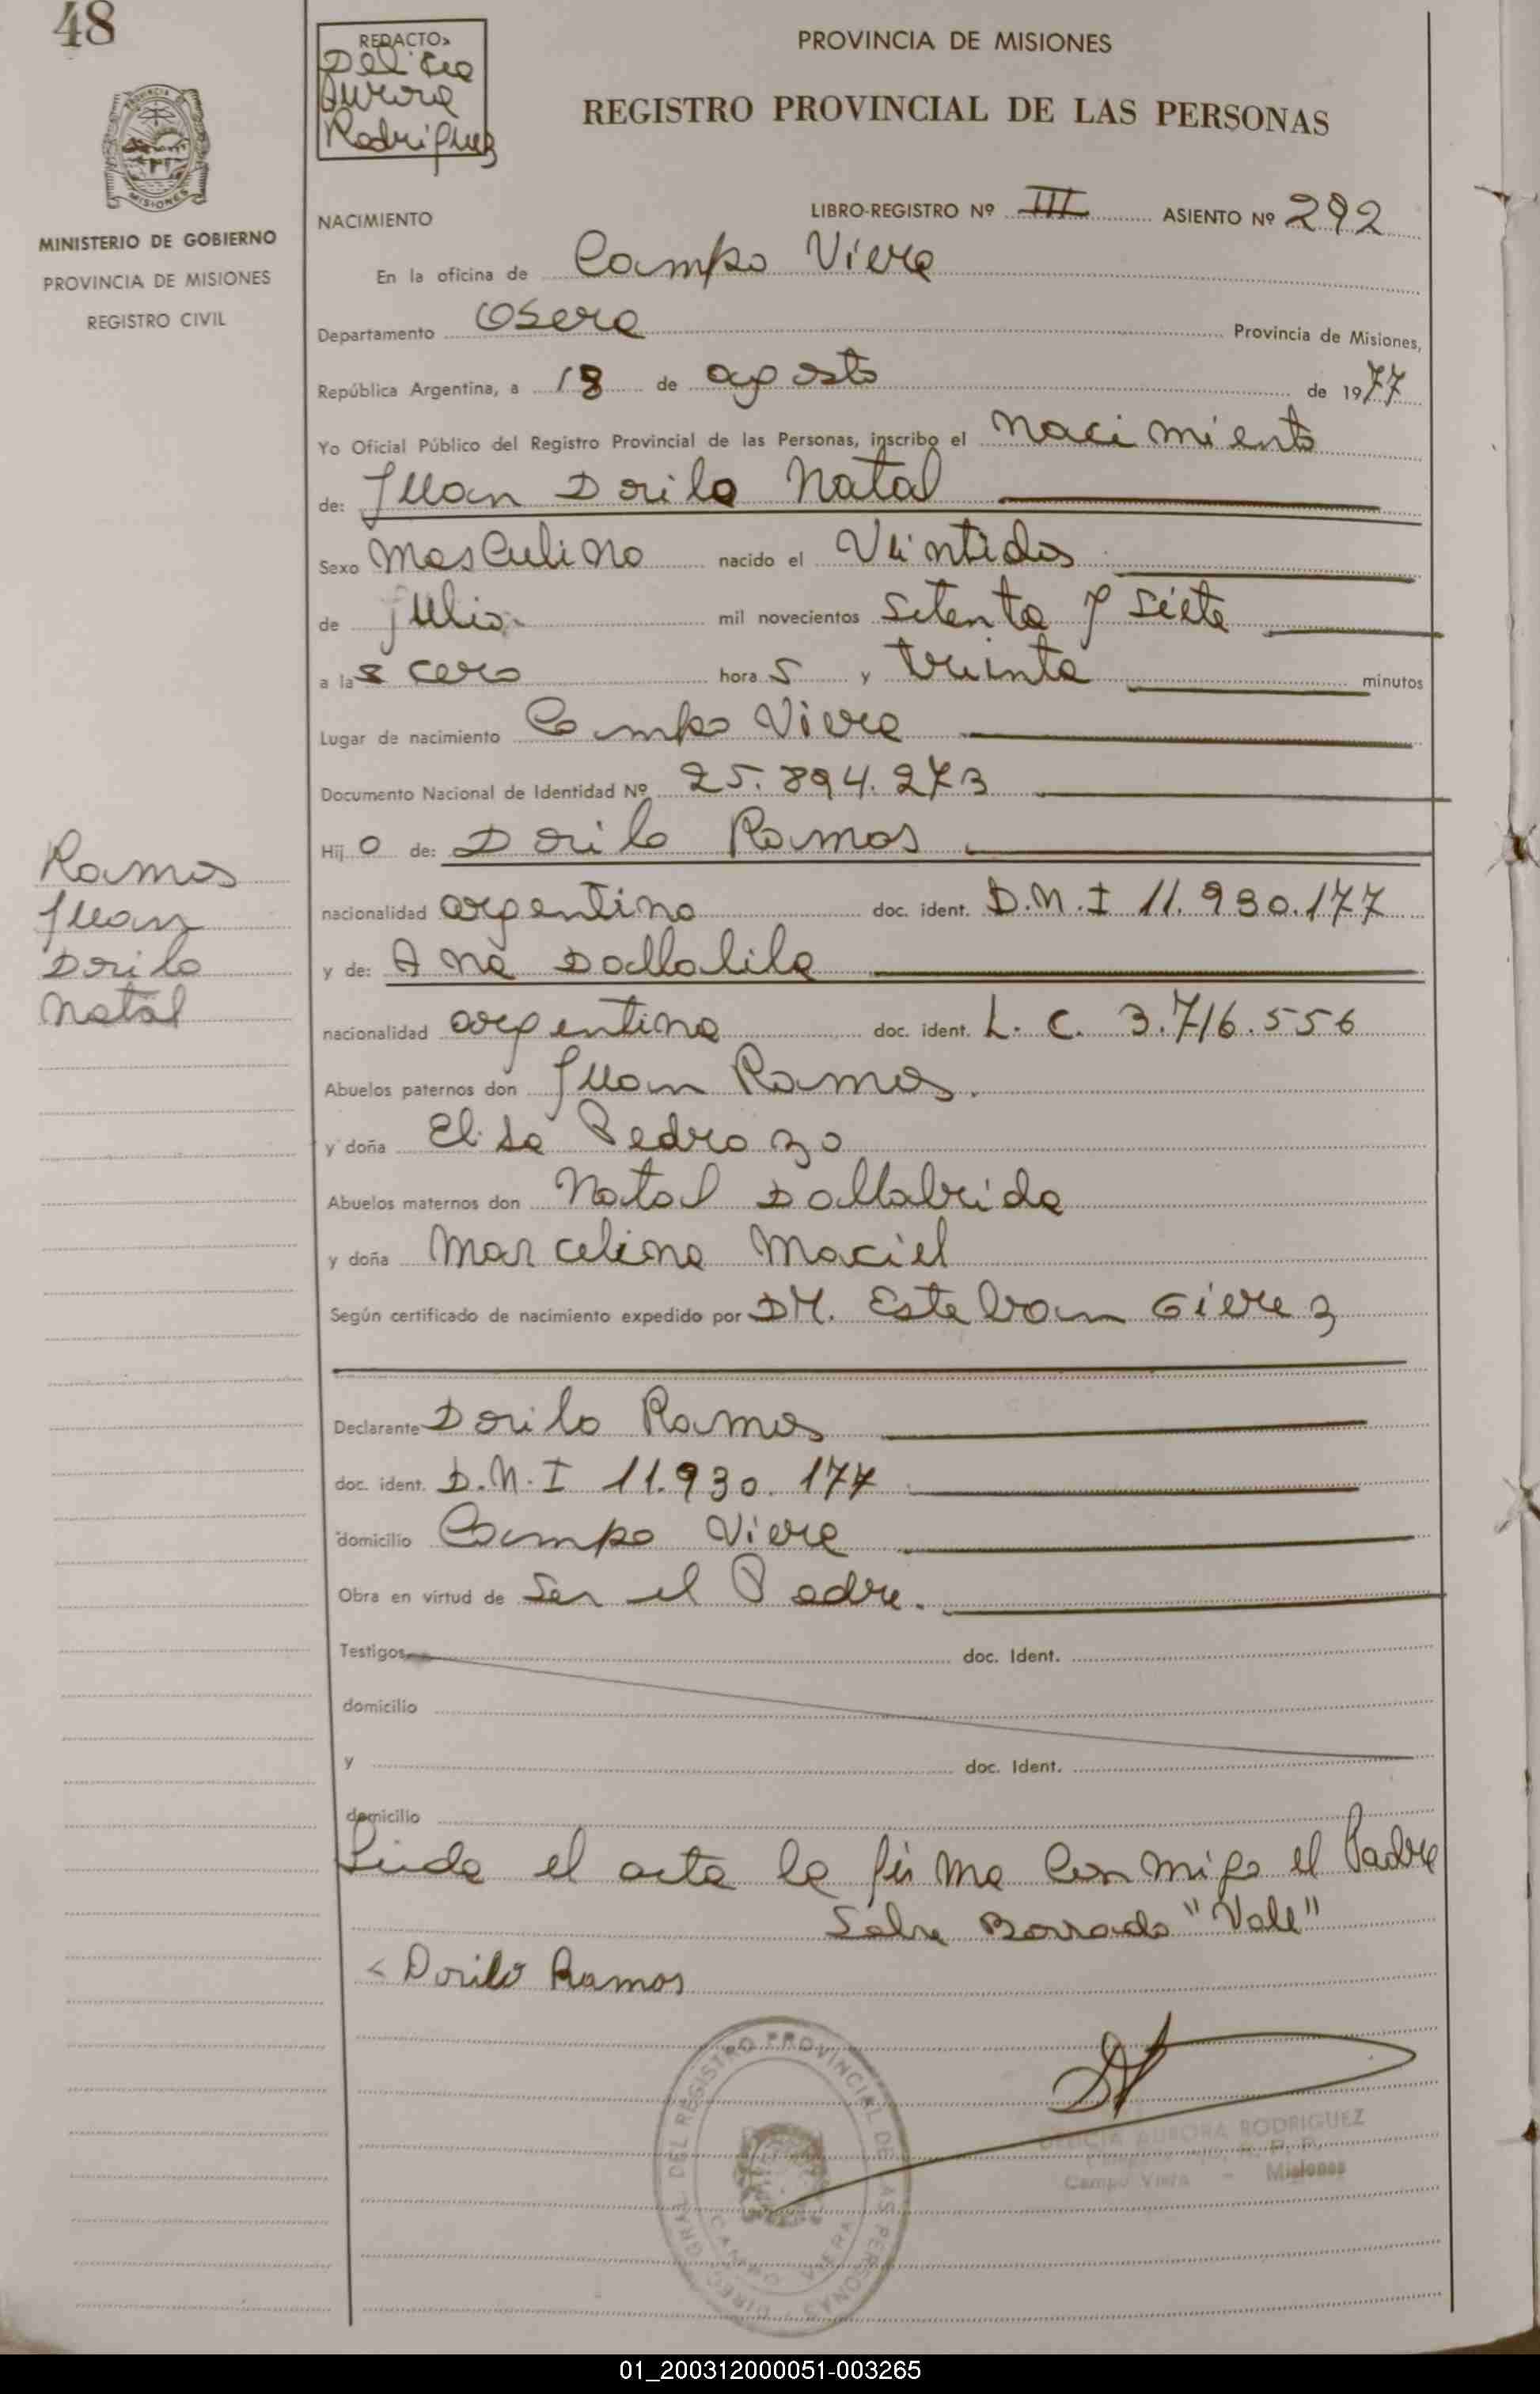 48
REDACTO:
Delicia
Aurora
Rodriguez
PROVINCIA DE MISIONES
REGISTRO PROVINCIAL DE LAS PERSONAS
MINISTERIO DE GOBIERNO
PROVINCIA DE MISIONES
REGISTRO CIVIL
NACIMIENTO LIBRO-REGISTRO Nº III ASIENTO Nº 292
En la oficina de Campo Viera
Departamento Obera Provincia de Misiones,
República Argentina, a 18 de agosto de 1977
Yo Oficial Público del Registro Provincial de las Personas, inscribo el nacimiento
de: Juan Dorilo Natal
Sexo Masculino nacido el Veintidos
de julio mil novecientos setenta y siete
a las cero hora s y treinta minutos
Lugar de nacimiento Campo Viera
Documento Nacional de Identidad Nº 25.894.273
Hijo de: Dorilo Ramos
nacionalidad argentino doc. ident. D.N.I 11.930.177
y de: Ana Dallalila
nacionalidad argentina doc. ident. L. C. 3.716.556
Abuelos paternos don Juan Ramos.
y doña Elisa Pedrozo
Abuelos maternos don Natal Dallabrida
y doña Marcelina Maciel
Según certificado de nacimiento expedido por DR. Esteban Gierez
Declarante Dorilo Ramos
doc. ident. D.N.I 11.930.177
domicilio Campo Viera
Obra en virtud de Ser el Padre.
Testigos doc. Ident.
domicilio
y doc. Ident.
domicilio
Leida el acta la firma conmigo el Padre
Sobre Borrado "Vale"
Dorilo Ramos
Ramos
Juan
Dorilo
Natal
DIREC. GRAL. DEL REGISTRO PROVINCIAL DE LAS PERSONAS
CAMPO VIERA
DELICIA AURORA RODRIGUEZ
Campo Viera - Misiones
01_200312000051-003265